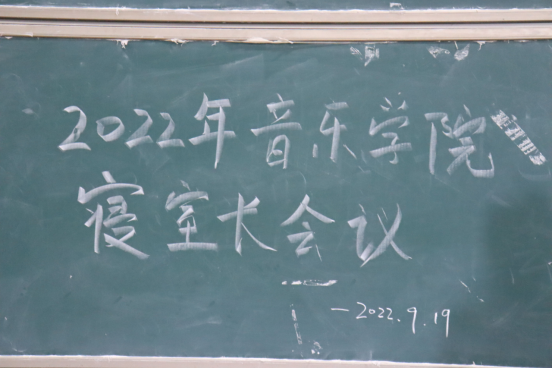 2022年音乐学院
寝室长会议
-2022.9.19